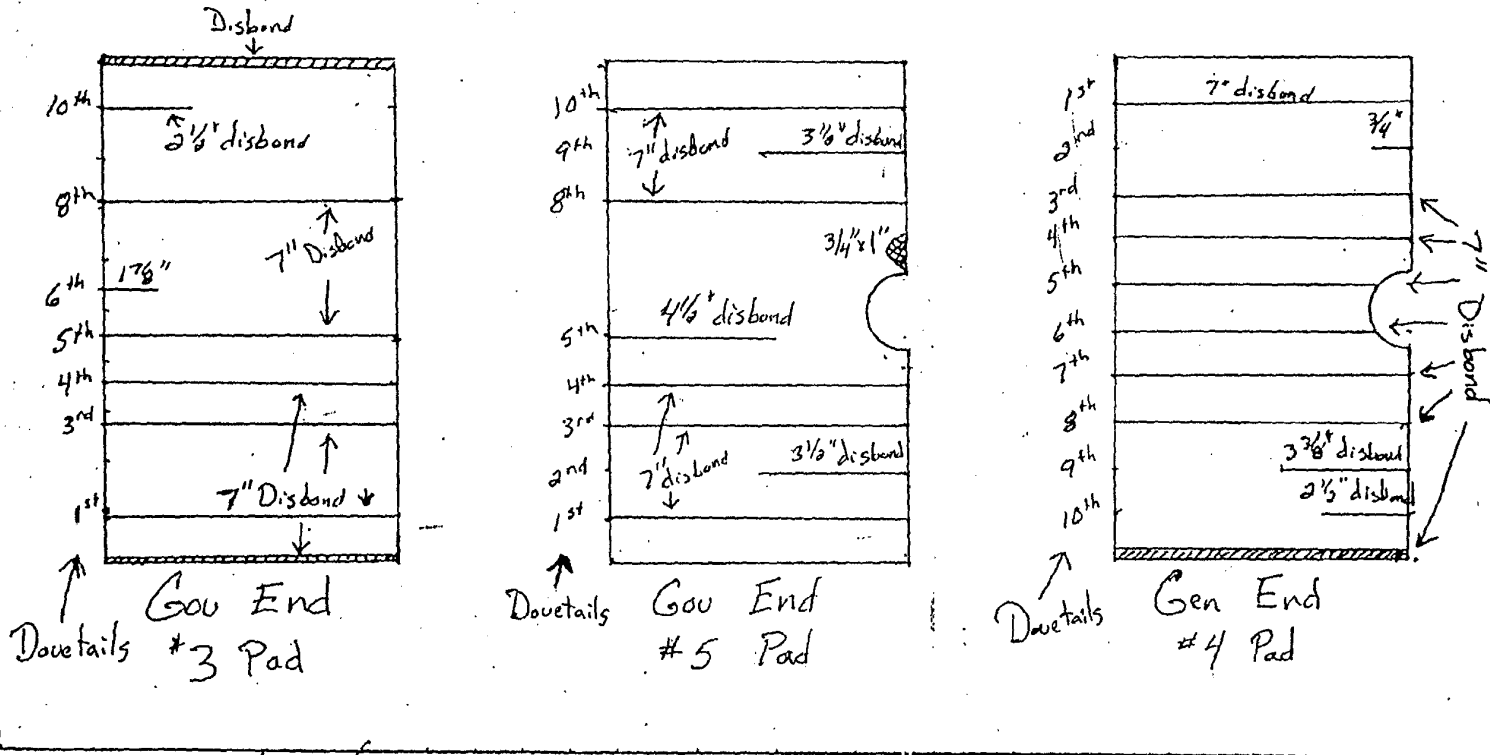 Disbond
10th
2 1/2" disbond
8th
7" Disbond
1 7/8"
6th
5th
4th
3rd
7" Disbond
1st
Dovetails
Gov End
#3 Pad
10th
7" disbond
9th
3 1/2" disbond
8th
3/4" x 1"
4 1/2" disbond
5th
4th
3rd
2nd
7" disbond
3 1/2" disbond
1st
Dovetails
Gov End
#5 Pad
1st
7" disbond
3/4"
2nd
3rd
4th
5th
6th
7th
8th
7" Disbond
9th
3 3/8" disbond
2 1/2" disbond
10th
Dovetails
Gen End
#4 Pad